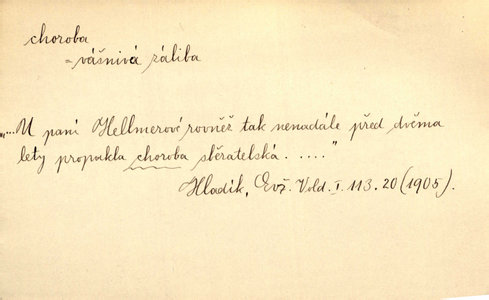 choroba
= vášnivá záliba
"... U paní Hellmerové rovněž tak nenadále před dvěma
lety propukla choroba sběratelská....."
Hladík, Evž. Vold. I. 113. 20 (1905).